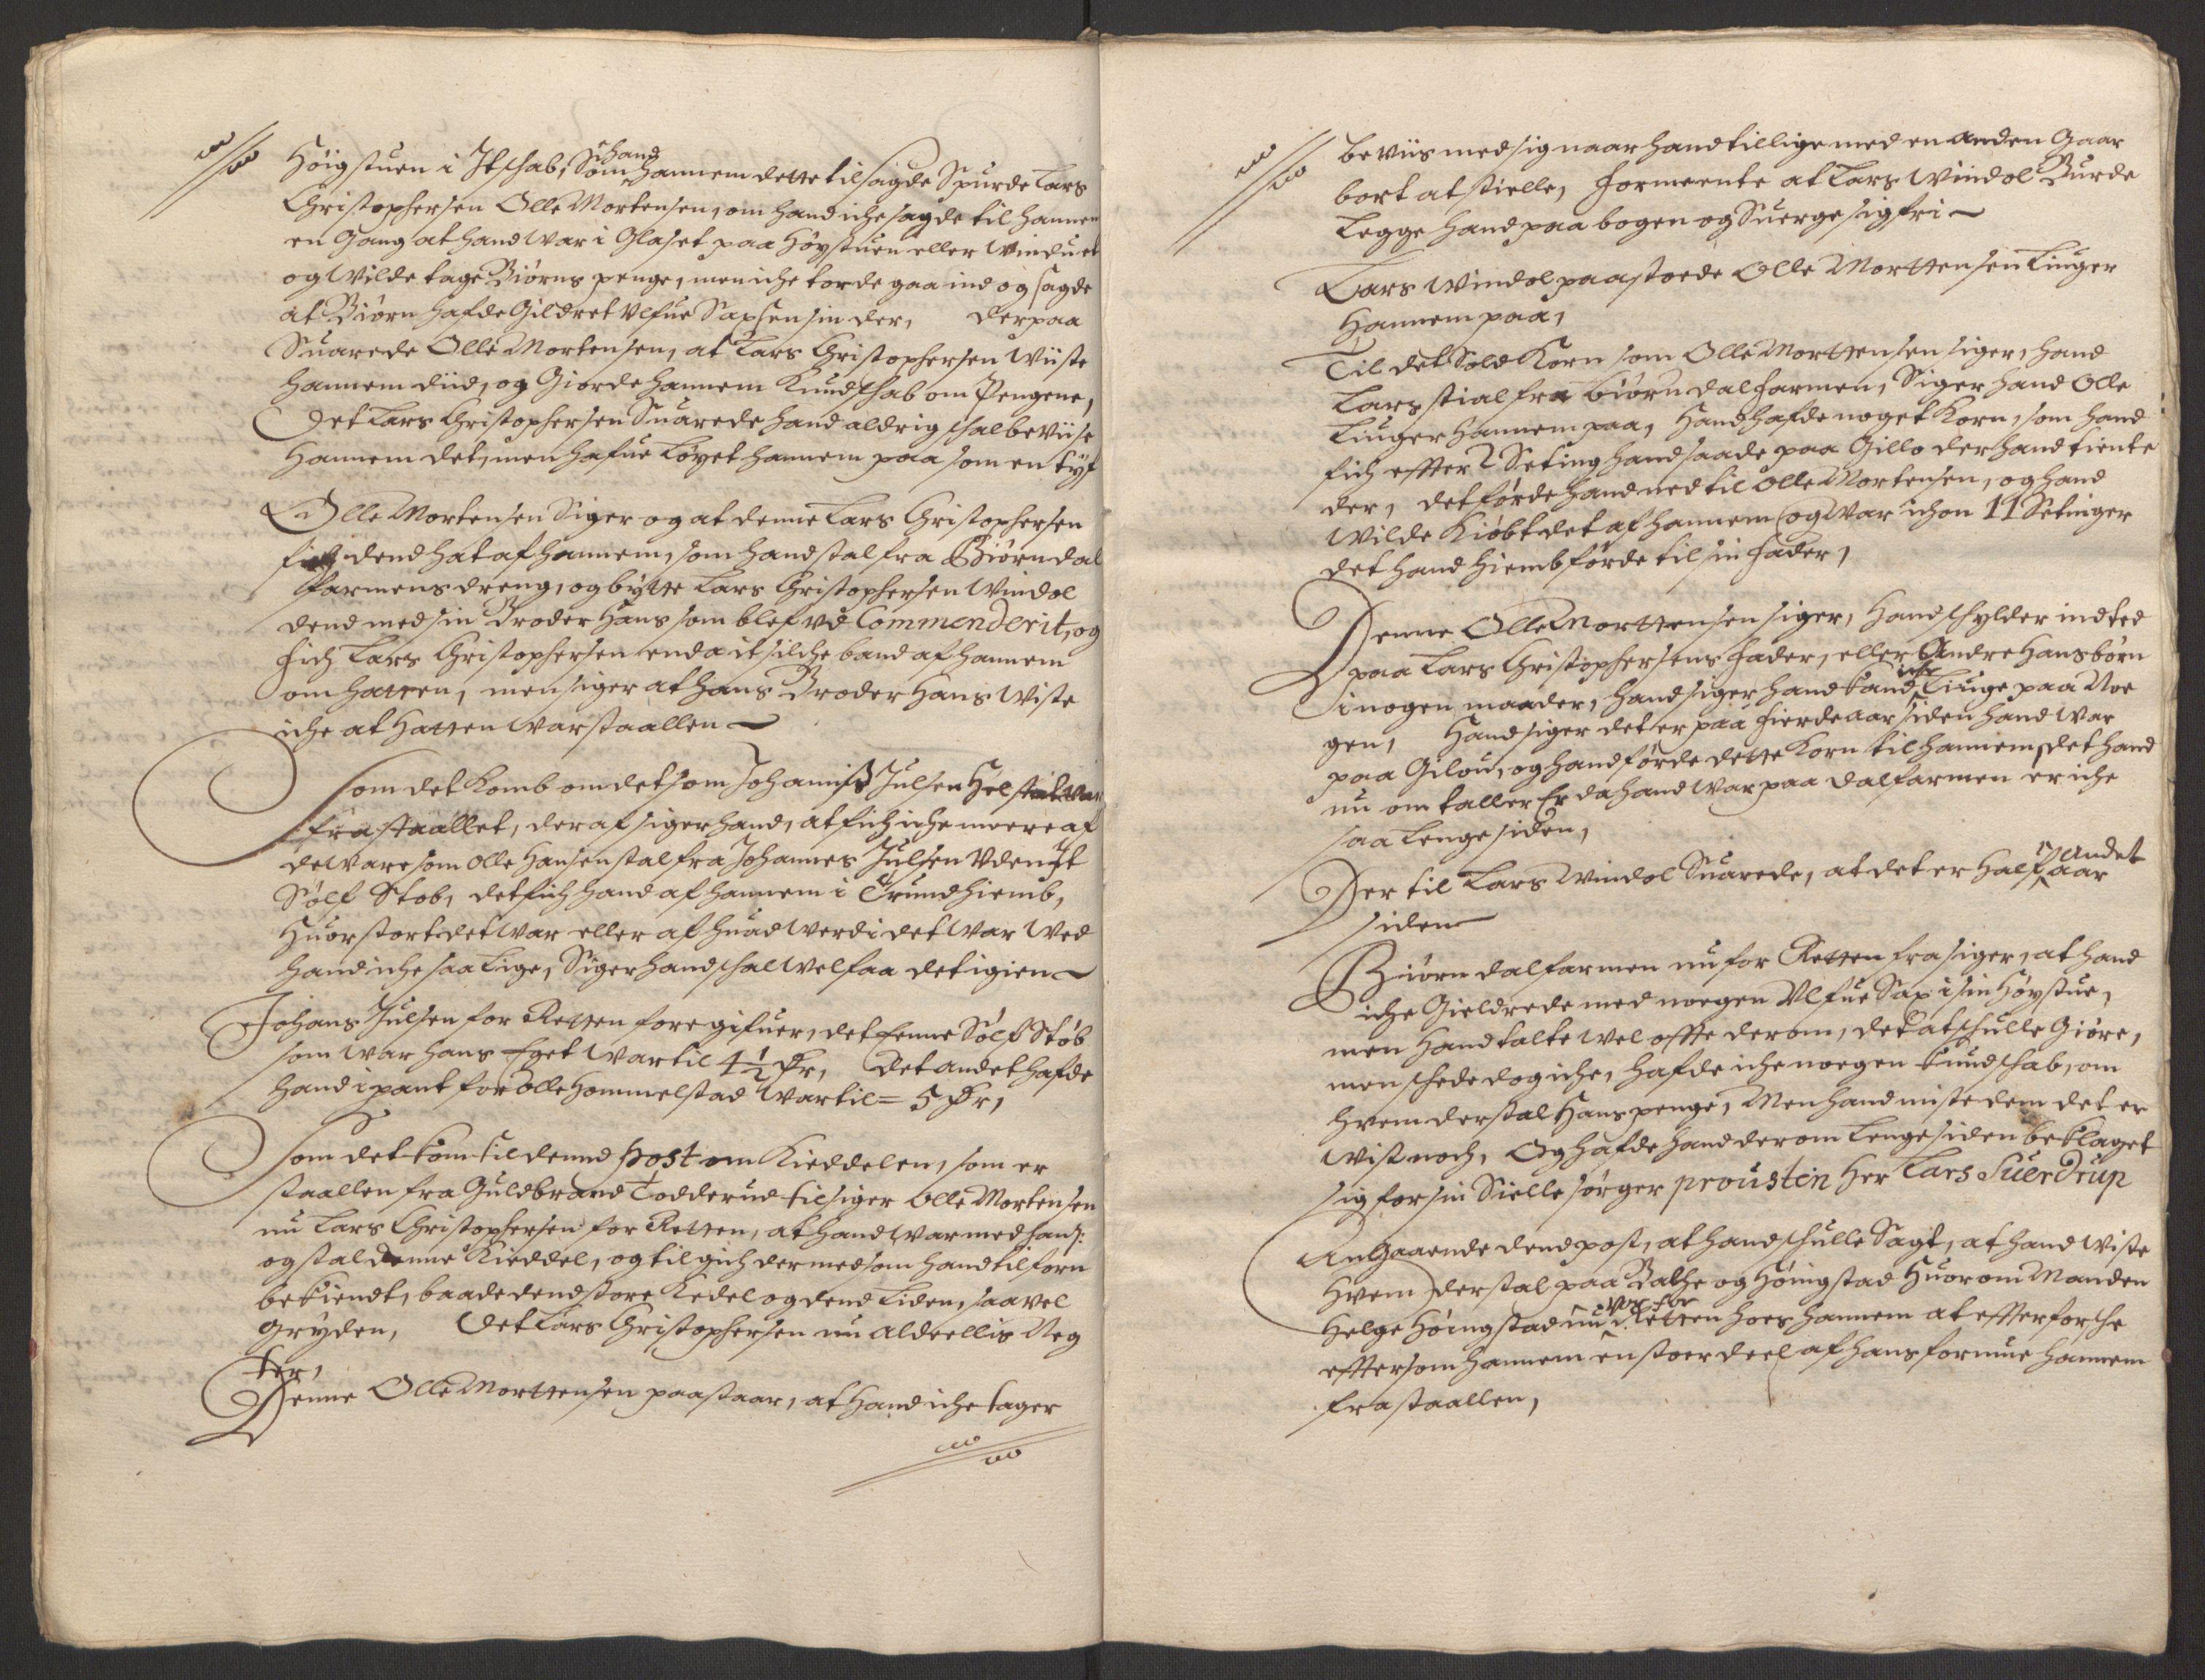 Høigstuen i It schab, Som hand hannem dette tilsagde Spurde Lars
Christophersen Olle Mortensen, om hand iche sagde til hannem
en Gang at hand War i Glaset paa Høystuen eller Winduet
og Wilde tage Biørns penge, men iche torde gaa ind og sagde
at Biørn hafde Gildret Ulfue Saxsen sin der, Derpaa
Suarede Olle Mortensen, at Lars Christophersen Wiiste
hannem diid, og Giorde hannem Kundschab om Pengene,
Det Lars Christophersen Suarede hand aldrig schal beviise
hannem det, men hafue Løyet hannem paa som en tyf
Olle Mortensen Siger og at denne Lars Christophersen
fich dend hat af hannem, som hand stal fra Biørn dal
farmens dreng, og bytte Lars Christophersen Windol
dend med sin Broder Hans som blef ud Commenderit, og
fich Lars Christophersen enda it silche band af hannem
om hatten, men siger at hans Broder Hans Wiste
iche at Hatten War staallen
Som det komb om det som Johannis Julsen Helstad War
fra staallet, deraf siger hand, at fich iche meere af
de Ware som Olle Hansen stal fra Johannes Julsen Uden It
Sølf Stob, det fich hand af hannem i Trundhiemb,
Huor stort det War eller af huad Werdi det War Wed
hand iche saa Lige, Siger hand schal Wel faa det igien
Johans Julsen for Retten foregifuer, det Eenne Sølf Støb
som War hans Eget War til 4½ Dr, Det andet hafde
hand i pant for Olle Hommelstad War til = 5 Dr,
Som det kom til dennd post om Kieddelen, som er
staallen fra Guldbrand Todderud tilsiger Olle Mortensen
nu Lars Christophersen for Retten, at hand War med ham:
og stal denne Kieddel, og tilgich dermed som hand tilforn
bekiendt, baade dend store Kedel og dend Liden, saavel
Gryden, Det Lars Christophersen nu Aldeellis Neg
ter,
Denne Olle Morttensen paastaar, at Hand iche tager
beviis med sig naar hand tillige med en anden Gaar
bort at stielle, formeente at Lars Windol Burde
Legge hand paa bogen og Suerge sig fri
Lars Windol paastoede Olle Morttensen Liuger
Hannem paa,
Til det Sold Korn som Olle Morttensen siger, hand
Lars stial fra Biørn dalfarmen, Siger hand Olle
Liuger hannem paa, Hand hafde noget Korn, som hand
fich effter 2 Seting hand saade paa Gillo der hand tiente
der, det førde hand ned til Olle Mortensen, og hand
Wilde Kiøbt det af hannem (og War ichon 11 Setinger
det hand Hiembførde til sin Fader,
Denne Olle Morttensen siger, Hand schylder indted
paa Lars Christophersens Fader, eller Andre Hans børn
i nogen maader, hand siger hand kand iche Liuge paa Noe
gen, Hand siger det er paa fierde aar siden hand War
paa Gilou, og hand førde dette Korn til hannem, det hand
nu om taller Er da hand War paa dalfarmen er iche
saa Lenge siden,
Der til Lars Windol Suarede, at det er Half Andet aar
siden
Biørn dalfarmen nu for Retten frasiger, at hand
iche Gieldrede med noegen Ulfue Sax i sin Høystue,
men Hand talte Wel offte derom, det at schulle Giøre,
men schede dog iche, hafde iche noegen kundschab, om
huem der stal Hans penge, Men hand miste dem det er
Wist noch, Og hafde hand derom Lenge siden beklaget
sig for sin Sielle sørger proústen Her Lars Suerdrup
Angaaende dend post, at hand schulle Sagt, at hand Wiste
Huem der stal paa Balche og Høingstad Huorom Manden
Helge Høingstad nu Vor for Retten hoes hannem at effterforsche
effter som hannem en stoer deel af hans formue hannem
frastaallen,